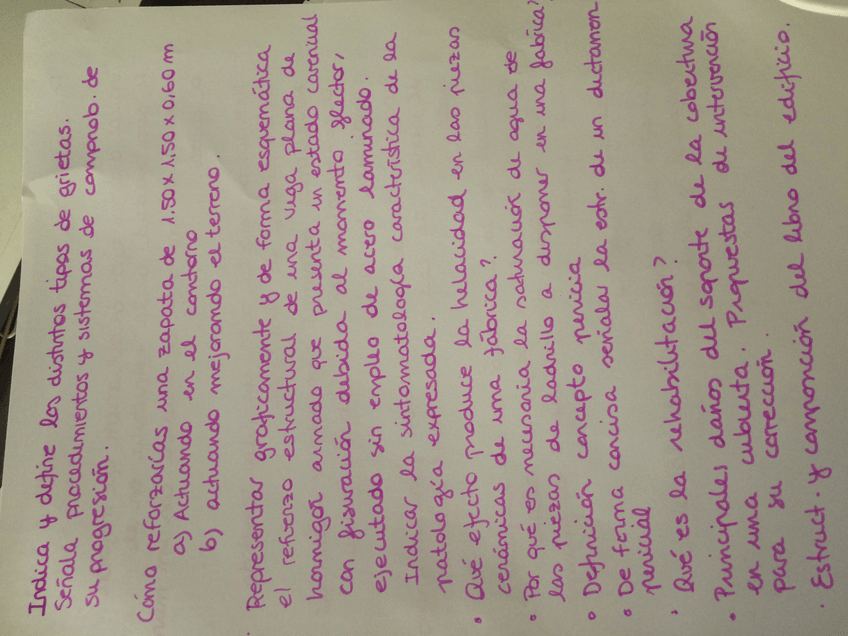 Indica y define los distintos tipos de grietas.
Señala procedimientos y sistemas de comprob. de
su progresión.
Cómo reforzarías una zapata de 1.50 x 1.50 x 0.60 m
a) Actuando en el contorno
b) actuando mejorando el terreno.
· Representar graficamente y de forma esquemática
el refuerzo estructural de una viga plana de
hormigón armado que presenta un estado carencial
con fisuración debida al momento flector,
ejecutado sin empleo de acero laminado.
Indicar la sintomatología característica de la
patología expresada.
• Qué efecto produce la helacidad en las piezas
cerámicas de una fábrica?
• Por qué es necesaria la saturación de agua de
las piezas de ladrillo a disponer en una fabrica?
• Definición concepto pericia
• De forma concisa señalar la estr. de un dictamen
pericial
· Qué es la rehabilitación?
• Principales daños del soporte de la cobertura
en una cubierta. Propuestas de intervención
para su corrección.
· Estruct. y composición del libro del edificio.